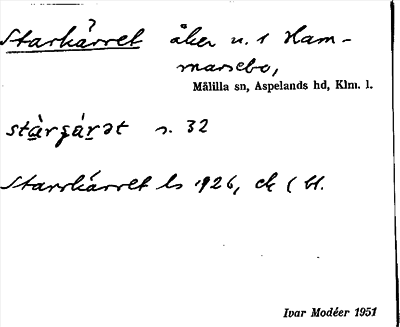 Starkärret åker n. 1 Ham-
marsebo,
Målilla sn, Aspelands hd, Klm. l.
stàrʂáret s. 32
Starrkärret ls 1926, ek (bl.
Ivar Modéer 1951